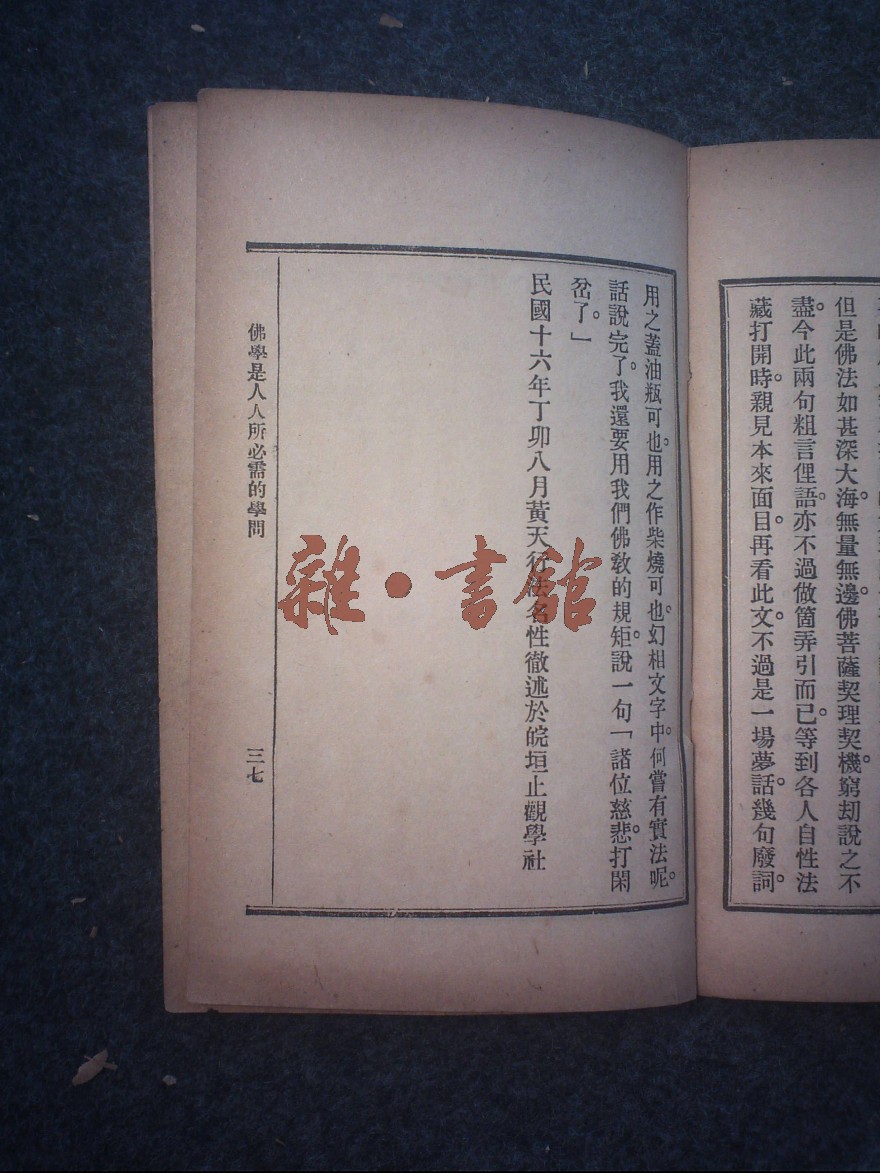 但是佛法如甚深大海。無量無邊。佛菩薩契理契機。窮刧說之不
盡。今此兩句粗言俚語。亦不過做箇弄引而已。等到各人自性法
藏打開時。親見本來面目。再看此文。不過是一場夢話。幾句廢詞。
用之蓋油瓶可也。用之作柴燒可也。幻相文字中。何嘗有實法呢。
話說完了。我還要用我們佛教的規矩。說一句「諸位慈悲。打閑
岔了。」
民國十六年丁卯八月黃天行法名性徹述於皖垣止觀學社
佛學是人人所必需的學問
三七
雜·書館